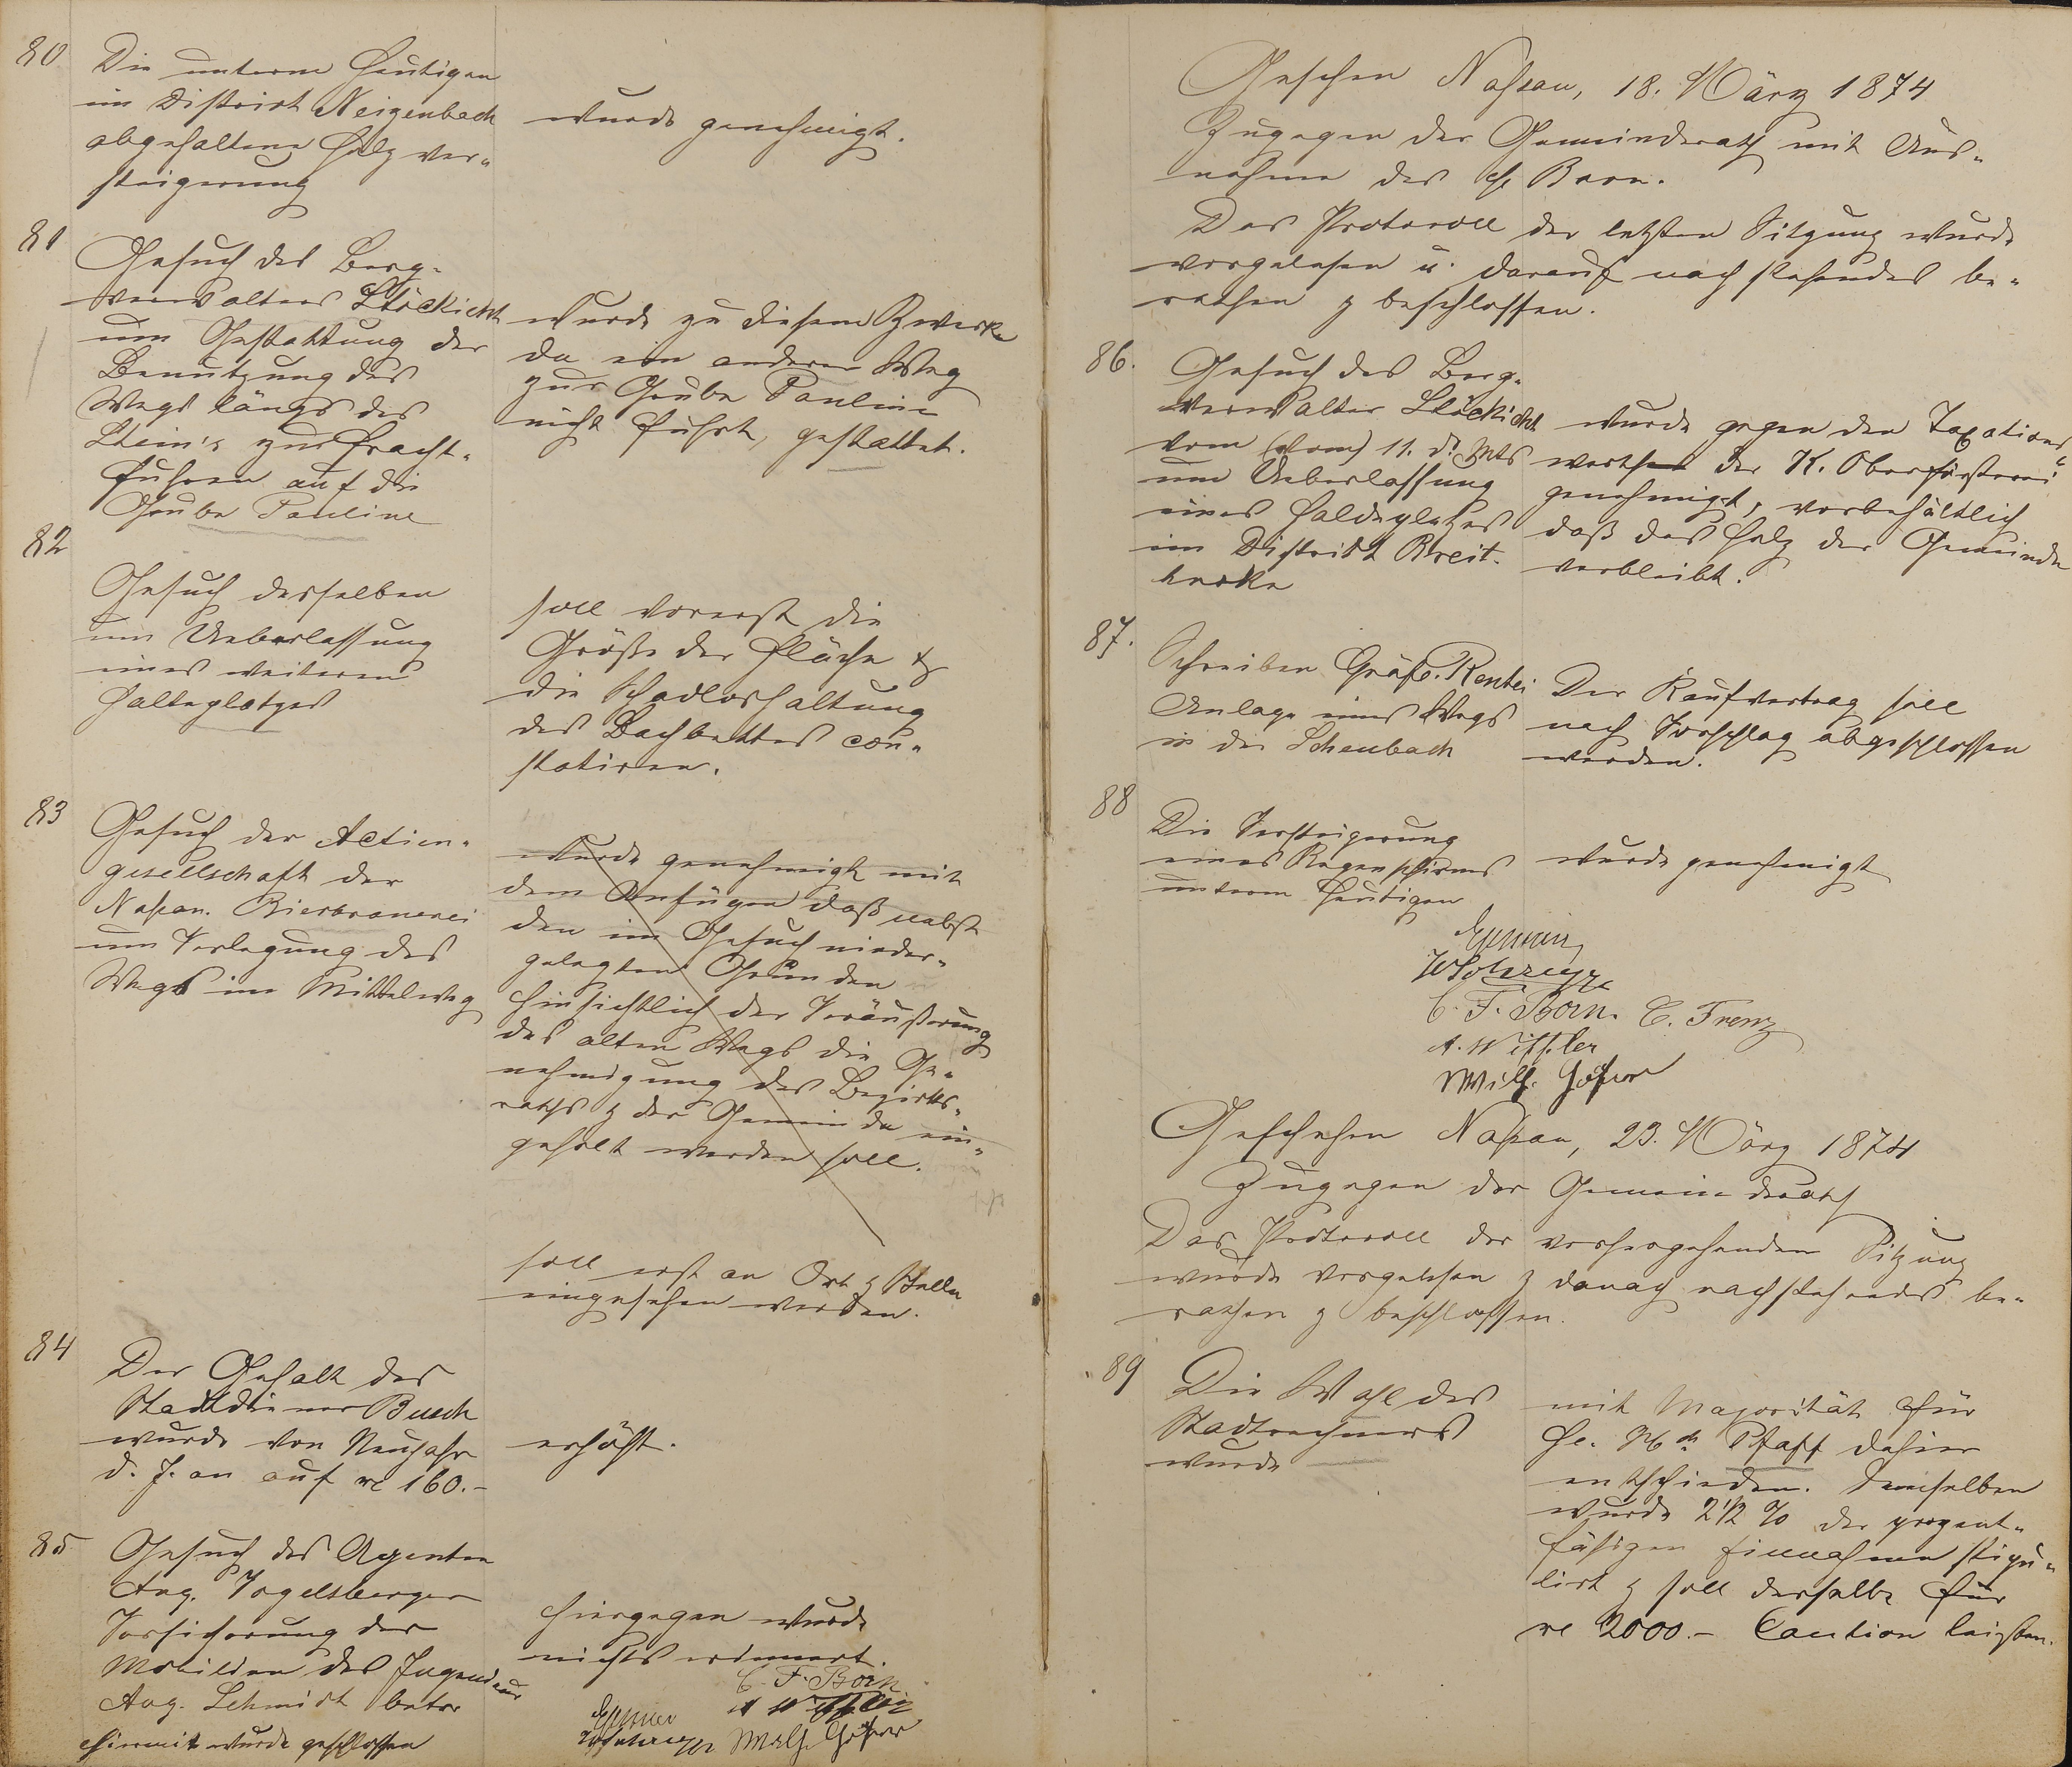 80
Die unterm Heutigen
im District Neizenbach
abgehaltene Holzver-
steigerung
wurde genehmigt.
81
Gesuch des Berg-
verwalters Stöckicht
um Gestattung der
Benutzung des
Wegs längs des
Stein's zur Fracht-
fuhren auf die
Grube Pauline
wurde zu diesem Zwecke
da ein anderer Weg
zur Grube Pauline
nicht führt, gestattet.
82
Gesuch desselben
um Ueberlassung
eines weiteren
Halteplatzes
soll vorerst die
Größe der Fläche &
die Schadloshaltung
des Bachbettes con-
statiren.
83
Gesuch der Actien-
gesellschaft der
Nassau. Bierbrauerei
um Verlegung des
Wegs im Mittelweg
wurde genehmigt mit
dem Anfügen daß nebst
den im Gesuch nieder-
gelegten Gründen
hinsichtlich der Veräußerung
des alten Wegs die Ge-
nehmigung des Bezirks-
raths & der Gemeinde ein-
geholt werden soll.
soll erst an Ort & Stelle
eingesehen werden.
84
Der Gehalt des
Stadtdiener Busch
wurde von Neujahr
d. J. an auf 160.-
erhöht.
85
Gesuch des Agenten
Aug. Vogelsberger
Versicherung der
Mobilien des Ingenieur
Aug. Schmidt betr.
hiergegen wurde
nichts erinnert.
Hiermit wurde geschlossen
C. F. Born
Geschehen Nassau, 18. März 1874
Zugegen der Gemeinderath mit Aus-
nahme des H. Born.
Das Protocoll der letzten Sitzung wurde
vorgelesen u. darauf nachstehendes be-
rathen & beschlossen.
86.
Gesuch des Berg-
verwalter Stöckicht
vom (vom) 11. d. Mts
um Ueberlassung
eines Haldeplatzes
im District Breit-
hecke
wurde gegen den Taxations-
werth der K. Oberförsterei
genehmigt, vorbehältlich
daß das Holz der Gemeinde
verbleibt.
87.
Schreiben Gräfl. Rentei
Anlage eines Wegs
in der Scheubach
Der Kaufvertrag soll
nach Vorschlag abgeschlossen
werden.
88
Die Versteigerung
eines Regenschirms
unterm Heutigen
wurde genehmigt
C. F. Born. C. Frenz
Geschehen Nassau, 23. März 1874
Zugegen der Gemeinderath
Das Protocoll der vorhergehenden Sitzung
wurde vorgelesen & danach nachstehendes be-
rathen & beschlossen.
89
Die Wahl des
Stadtrechners
wurde
mit Majorität für
Hr. Pfaff dahier
entschieden. Demselben
wurde 2 1/2 % der prozent-
fähigen Einnahmen stipu-
lirt & soll derselbe für
2000.- Caution leisten.